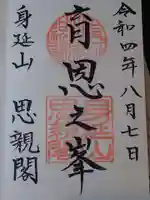 令和四年八月七日
育恩之峯
身延山
思親閣